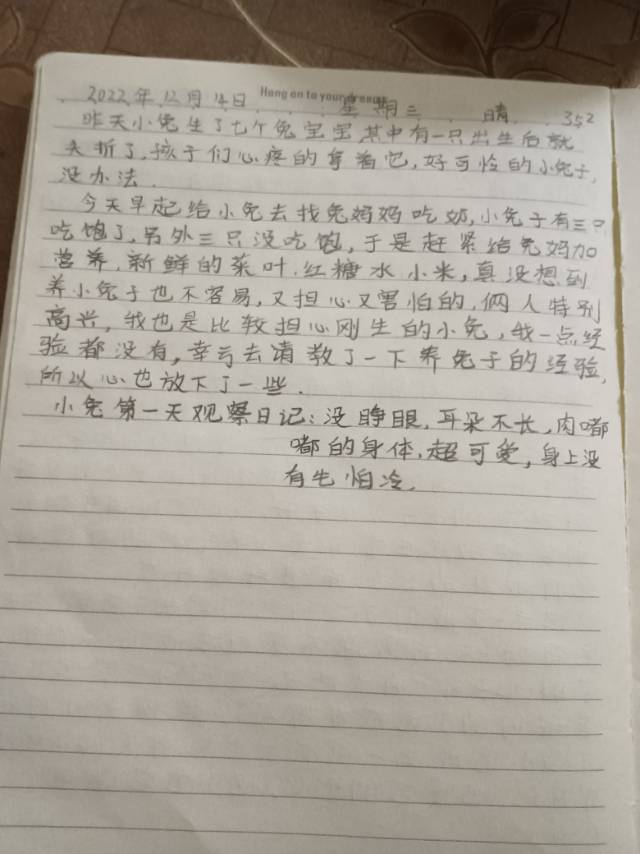 Hang on to your dreams
2022年12月14日 星期三 晴 352
昨天小兔生了七个兔宝宝,其中有一只出生后就
夭折了,孩子们心疼的拿着它,好可怜的小兔子,
没办法.
今天早起给小兔去找兔妈妈吃奶,小兔子有三只
吃饱了,另外三只没吃饱,于是赶紧给兔妈加
营养,新鲜的菜叶.红糖水小米,真没想到
养小兔子也不容易,又担心又害怕的,俩人特别
高兴,我也是比较担心刚生的小兔,我一点经
验都没有,幸亏去请教了一下养兔子的经验,
所以心也放下了一些.
小兔第一天观察日记:没睁眼,耳朵不长,肉嘟
嘟的身体,超可爱,身上没
有毛怕冷.